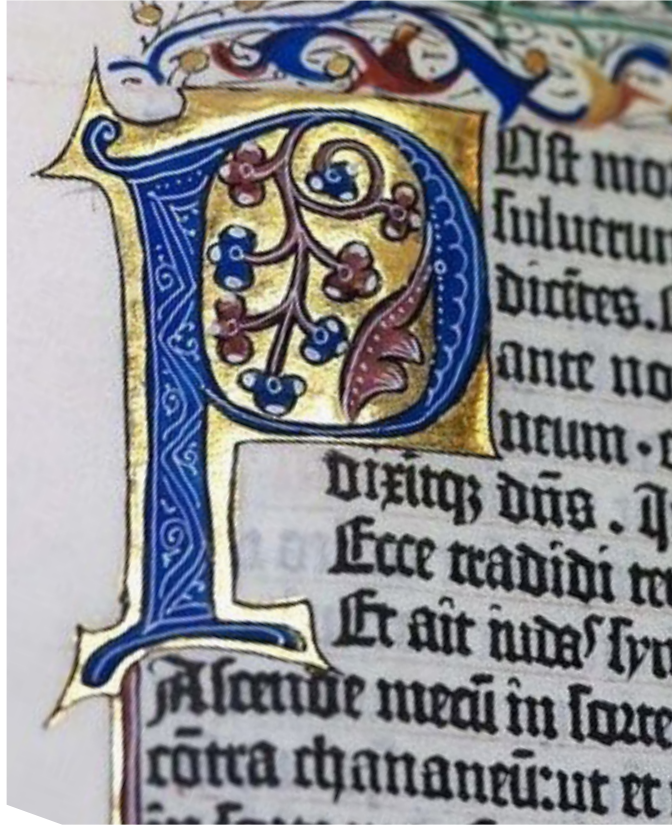 POſt mo
ſuluerun
dicētes.
ante no
neum · e
dixitqꝫ dn̄s . I
Ecce tradidi te
Et ait iudaſ ſym
Aſcende mecū in ſorte
cōtra chananeū: ut et